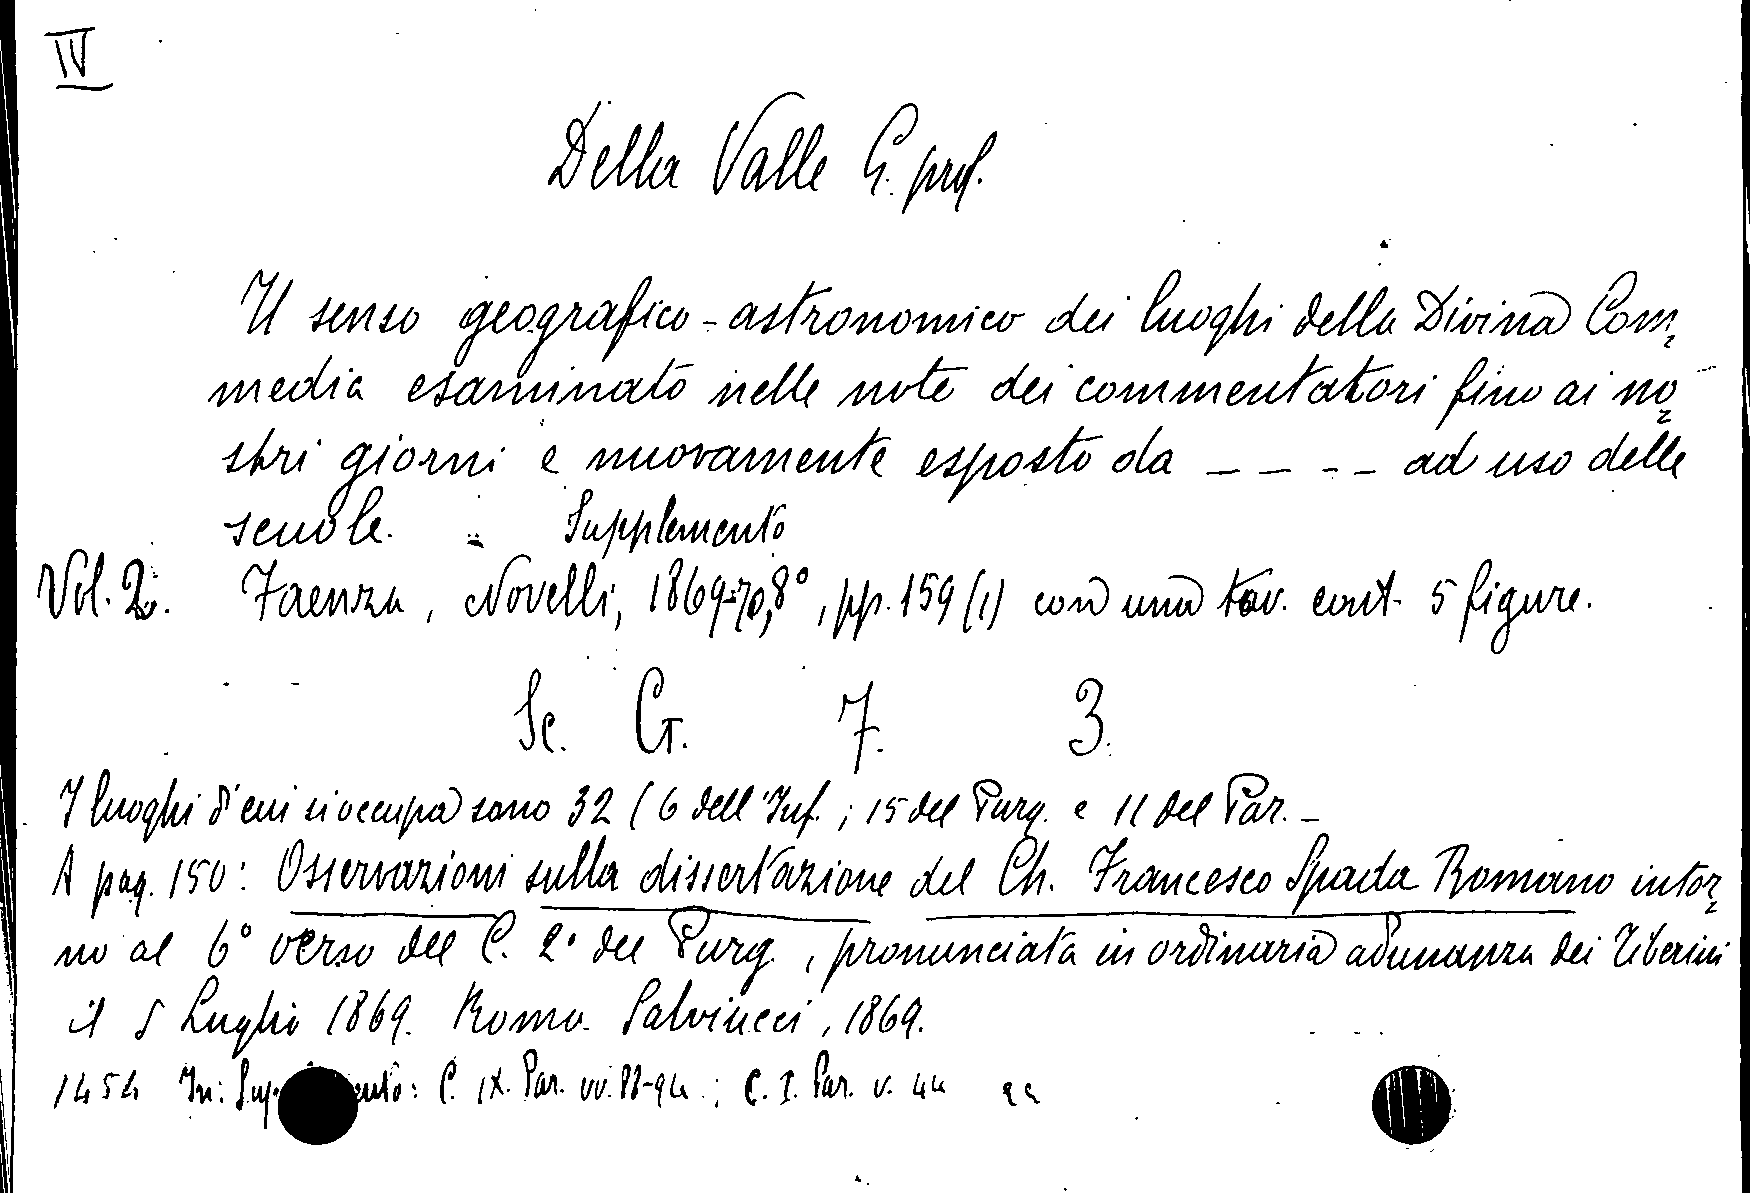 IV
Della Valle G. prof.
Il senso geografico-astronomico dei luoghi della Divina Com=
media esaminato nelle note dei commentatori fino ai no=
stri giorni e nuovamente esposto da - - - - ad uso delle
scuole. - Supplemento
Vol. 2. Faenza, Novelli, 1869-70, 8°, pp. 159 (1) con una tav. cont. 5 figure.
Sc. G. 7. 3.
I luoghi d'cui si occupa sono 32 (6 dell'Inf.; 15 del Purg. e 11 del Par. -
A pag. 150: Osservazioni sulla dissertazione del Ch. Francesco Spada Romano intor=
no al 6° verso del C. 2° del Purg., pronunciata in ordinaria adunanza dei Tiberini
il 5 Luglio 1869. Roma. Salviucci, 1869.
1454 In: Sup ento: C. IX. Par. vv. 82-94.; C. I. Par. v. 44